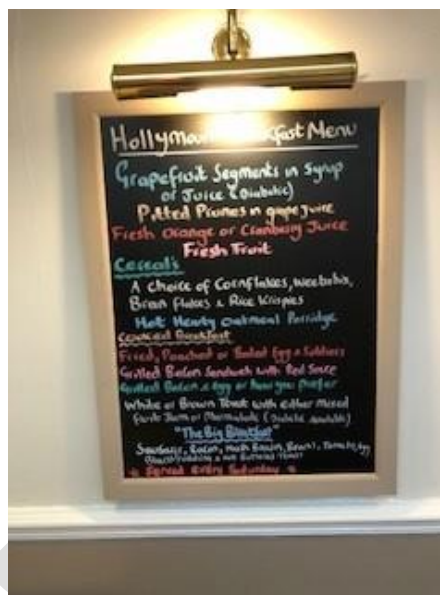 Hollymount Breakfast Menu
Grapefruit Segments in Syrup
or Juice (Diabetic)
Pitted Prunes in grape Juice
Fresh Orange or Cranberry Juice
Fresh Fruit
Cereal's
A choice of Cornflakes, Weetabix,
Bran flakes & Rice Krispies
Hot Hearty Oatmeal Porridge
Cooked Breakfast
Fried, Poached or Boiled Egg & Soldiers
Grilled Bacon Sandwich with Red Sauce
Grilled Bacon & Egg or how you prefer
White or Brown Toast with either mixed
Fruit Jam or Marmalade (Diabetic available)
"The Big Breakfast"
Sausages, Bacon, Hash Brown, Beans, Tomato, Egg
Black Pudding & Hot Buttered Toast
* Served Every Saturday *